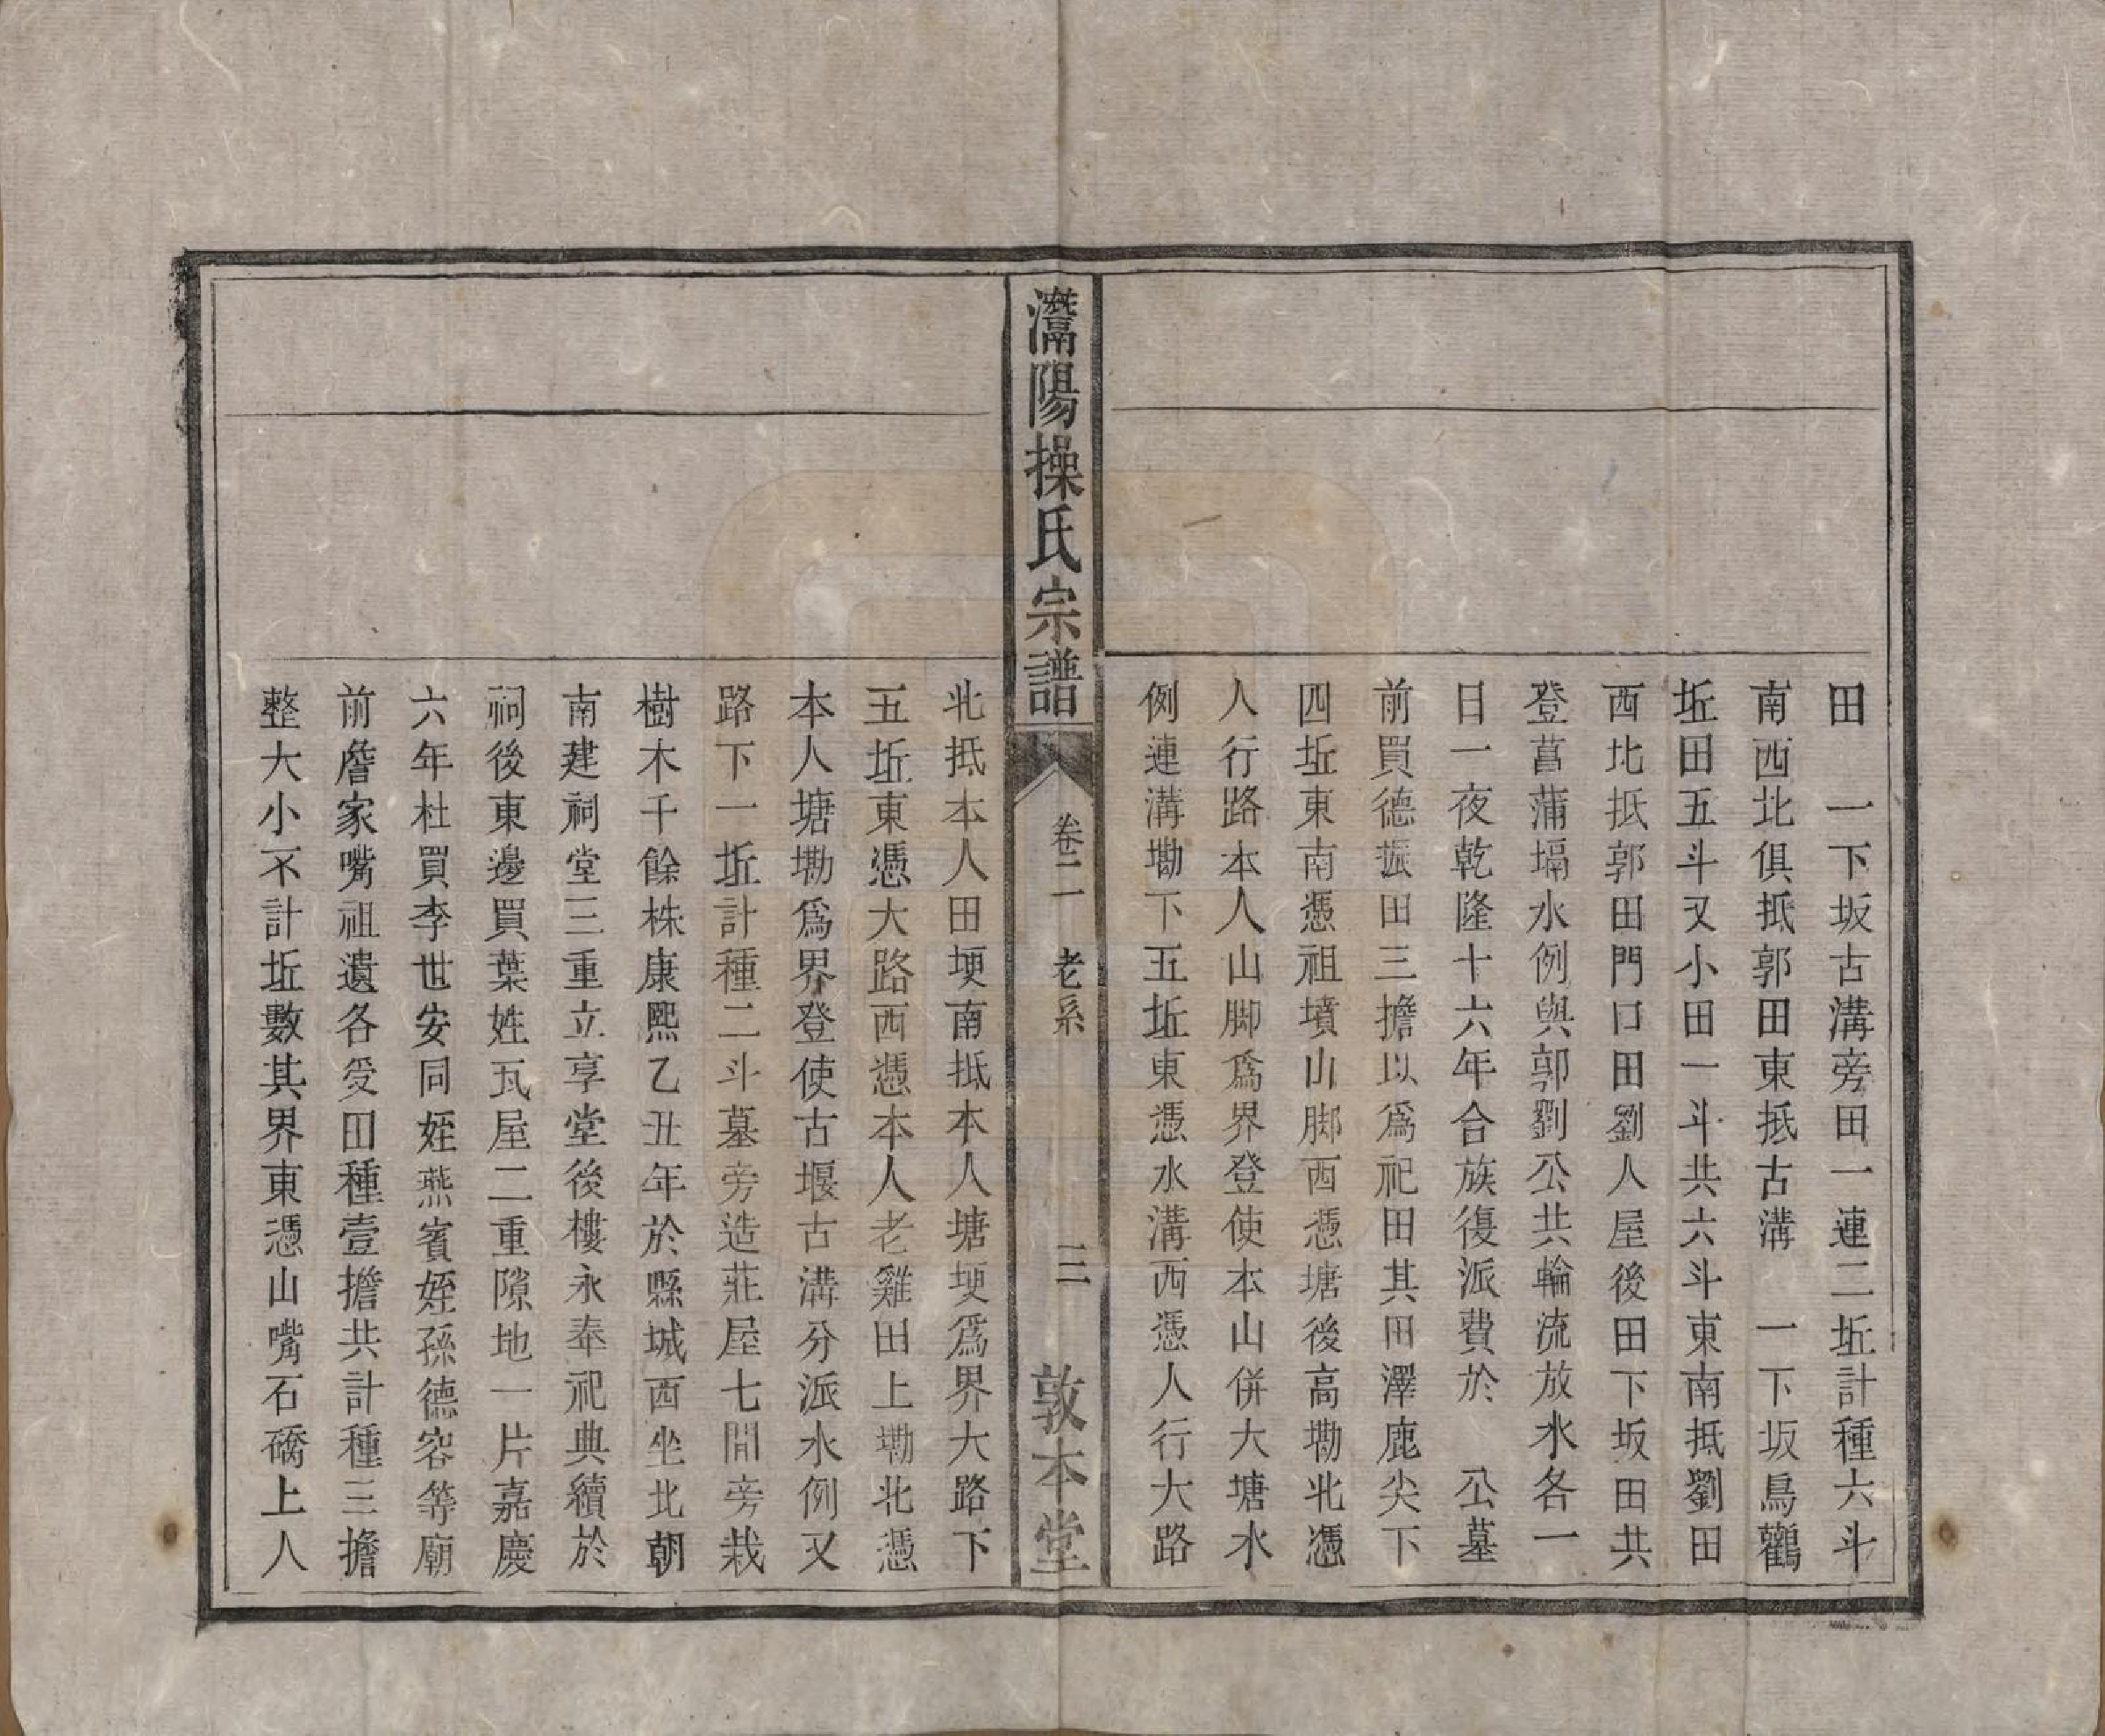 田　一下坂古溝旁田一連二坵計種六斗
南西北俱抵郭田東抵古溝　一下坂鳥鸛
坵田五斗又小田一斗共六斗東南抵劉田
西北抵郭田門口田劉人屋後田下坂田共
登菖蒲塥水例與郭劉公共輪流放水各一
日一夜乾隆十六年合族復派費於　公墓
前買德振田三擔以爲祀田其田澤鹿尖下
四坵東南憑祖墳山脚西憑塘後高墈北憑
人行路本人山脚爲界登使本山併大塘水
例連溝墈下五坵東憑水溝西憑人行大路
瀳陽操氏宗譜
卷二　老系
三
敦本堂
北抵本人田埂南抵本人塘埂爲界大路下
五坵東憑大路西憑本人老雞田上墈北憑
本人塘墈爲界登使古堰古溝分派水例又
路下一坵計種二斗墓旁造莊屋七間旁栽
樹木千餘株康熙乙丑年於縣城西坐北朝
南建祠堂三重立享堂後樓永奉祀典續於
祠後東邊買葉姓瓦屋二重隙地一片嘉慶
六年杜買李世安同姪燕賓姪孫德容等廟
前詹家嘴祖遺各受田種壹擔共計種三擔
整大小不計坵數其界東憑山嘴石磱上人